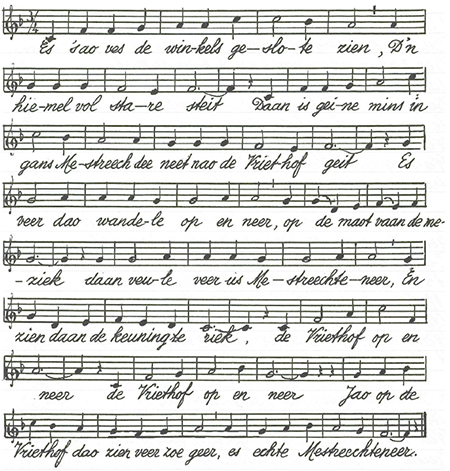 Es 'sao ves de win-kels ge-slo-te zien, D'n
hie-mel vol sta-re steit Daan is gei-ne mins in
gans Me-streech dee neet nao de Vriet-hof geit Es
veer dao wande-le op en neer, op de maot vaan de me-
-ziek daan veu-le veer us Me-streechte-neer, En
zien daan de keuning te riek, de Vriethof op en
neer de Vriethof op en neer Jao op de
Vriethof dao zien veer zoe geer, es echte Mestreechteneer.